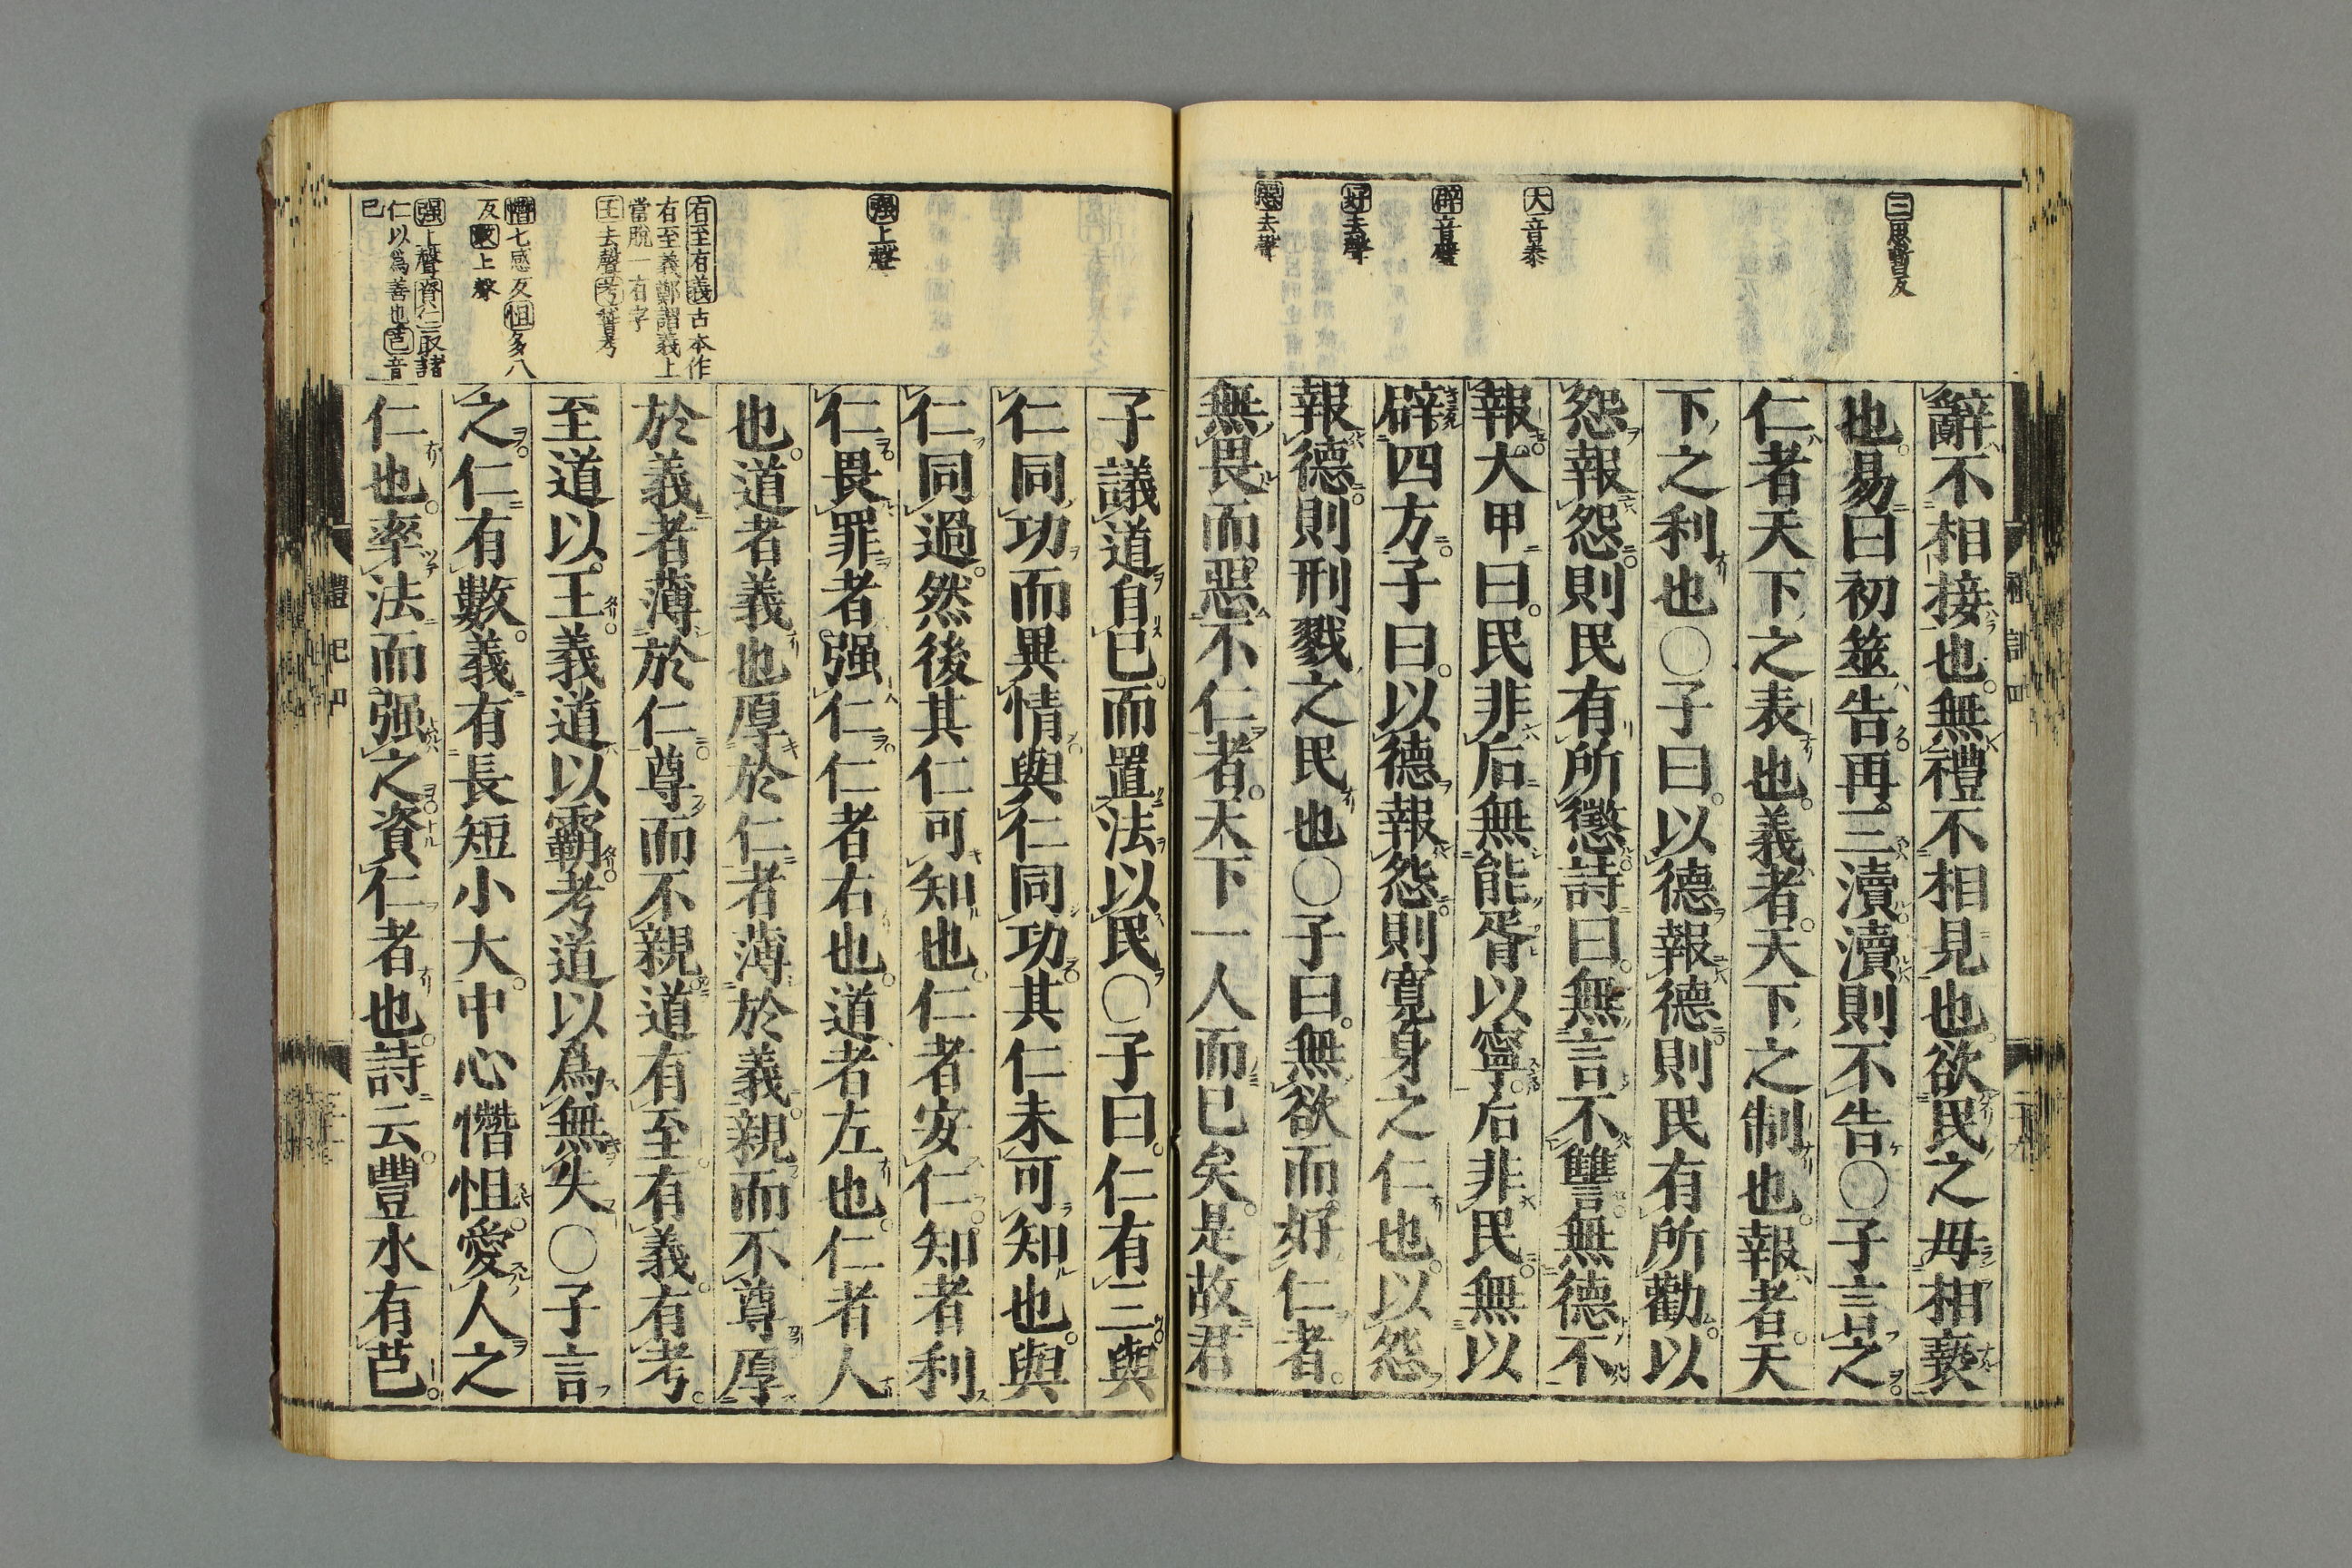 三思暫反
大音泰
辟音璧
好去聲
惡去聲
辭不相接也無禮不相見也欲民之毋相褻
也易曰初筮告再三瀆瀆則不告○子言之
仁者天下之表也義者天下之制也報者天
下之利也○子曰以德報德則民有所勸以
怨報怨則民有所懲詩曰無言不讐無德不
報大甲曰民非后無能胥以寧后非民無以
辟四方子曰以德報怨則寬身之仁也以怨
報德則刑戮之民也○子曰無欲而好仁者
無畏而惡不仁者天下一人而已矣是故君
强上聲
右至有義古本作
右至義鄭謂義上
當脫一有字
王去聲考稽考
憯七感反怛多八
反數上聲
强上聲資仁取諸
仁以爲善也芑音
巳
子議道自已而置法以民○子曰仁有三與
仁同功而異情與仁同功其仁未可知也與
仁同過然後其仁可知也仁者安仁知者利
仁畏罪者强仁仁者右也道者左也仁者人
也道者義也厚於仁者薄於義親而不尊厚
於義者薄於仁尊而不親道有至有義有考
至道以王義道以霸考道以爲無失○子言
之仁有數義有長短小大中心憯怛愛人之
仁也率法而强之資仁者也詩云豐水有芑
禮記四